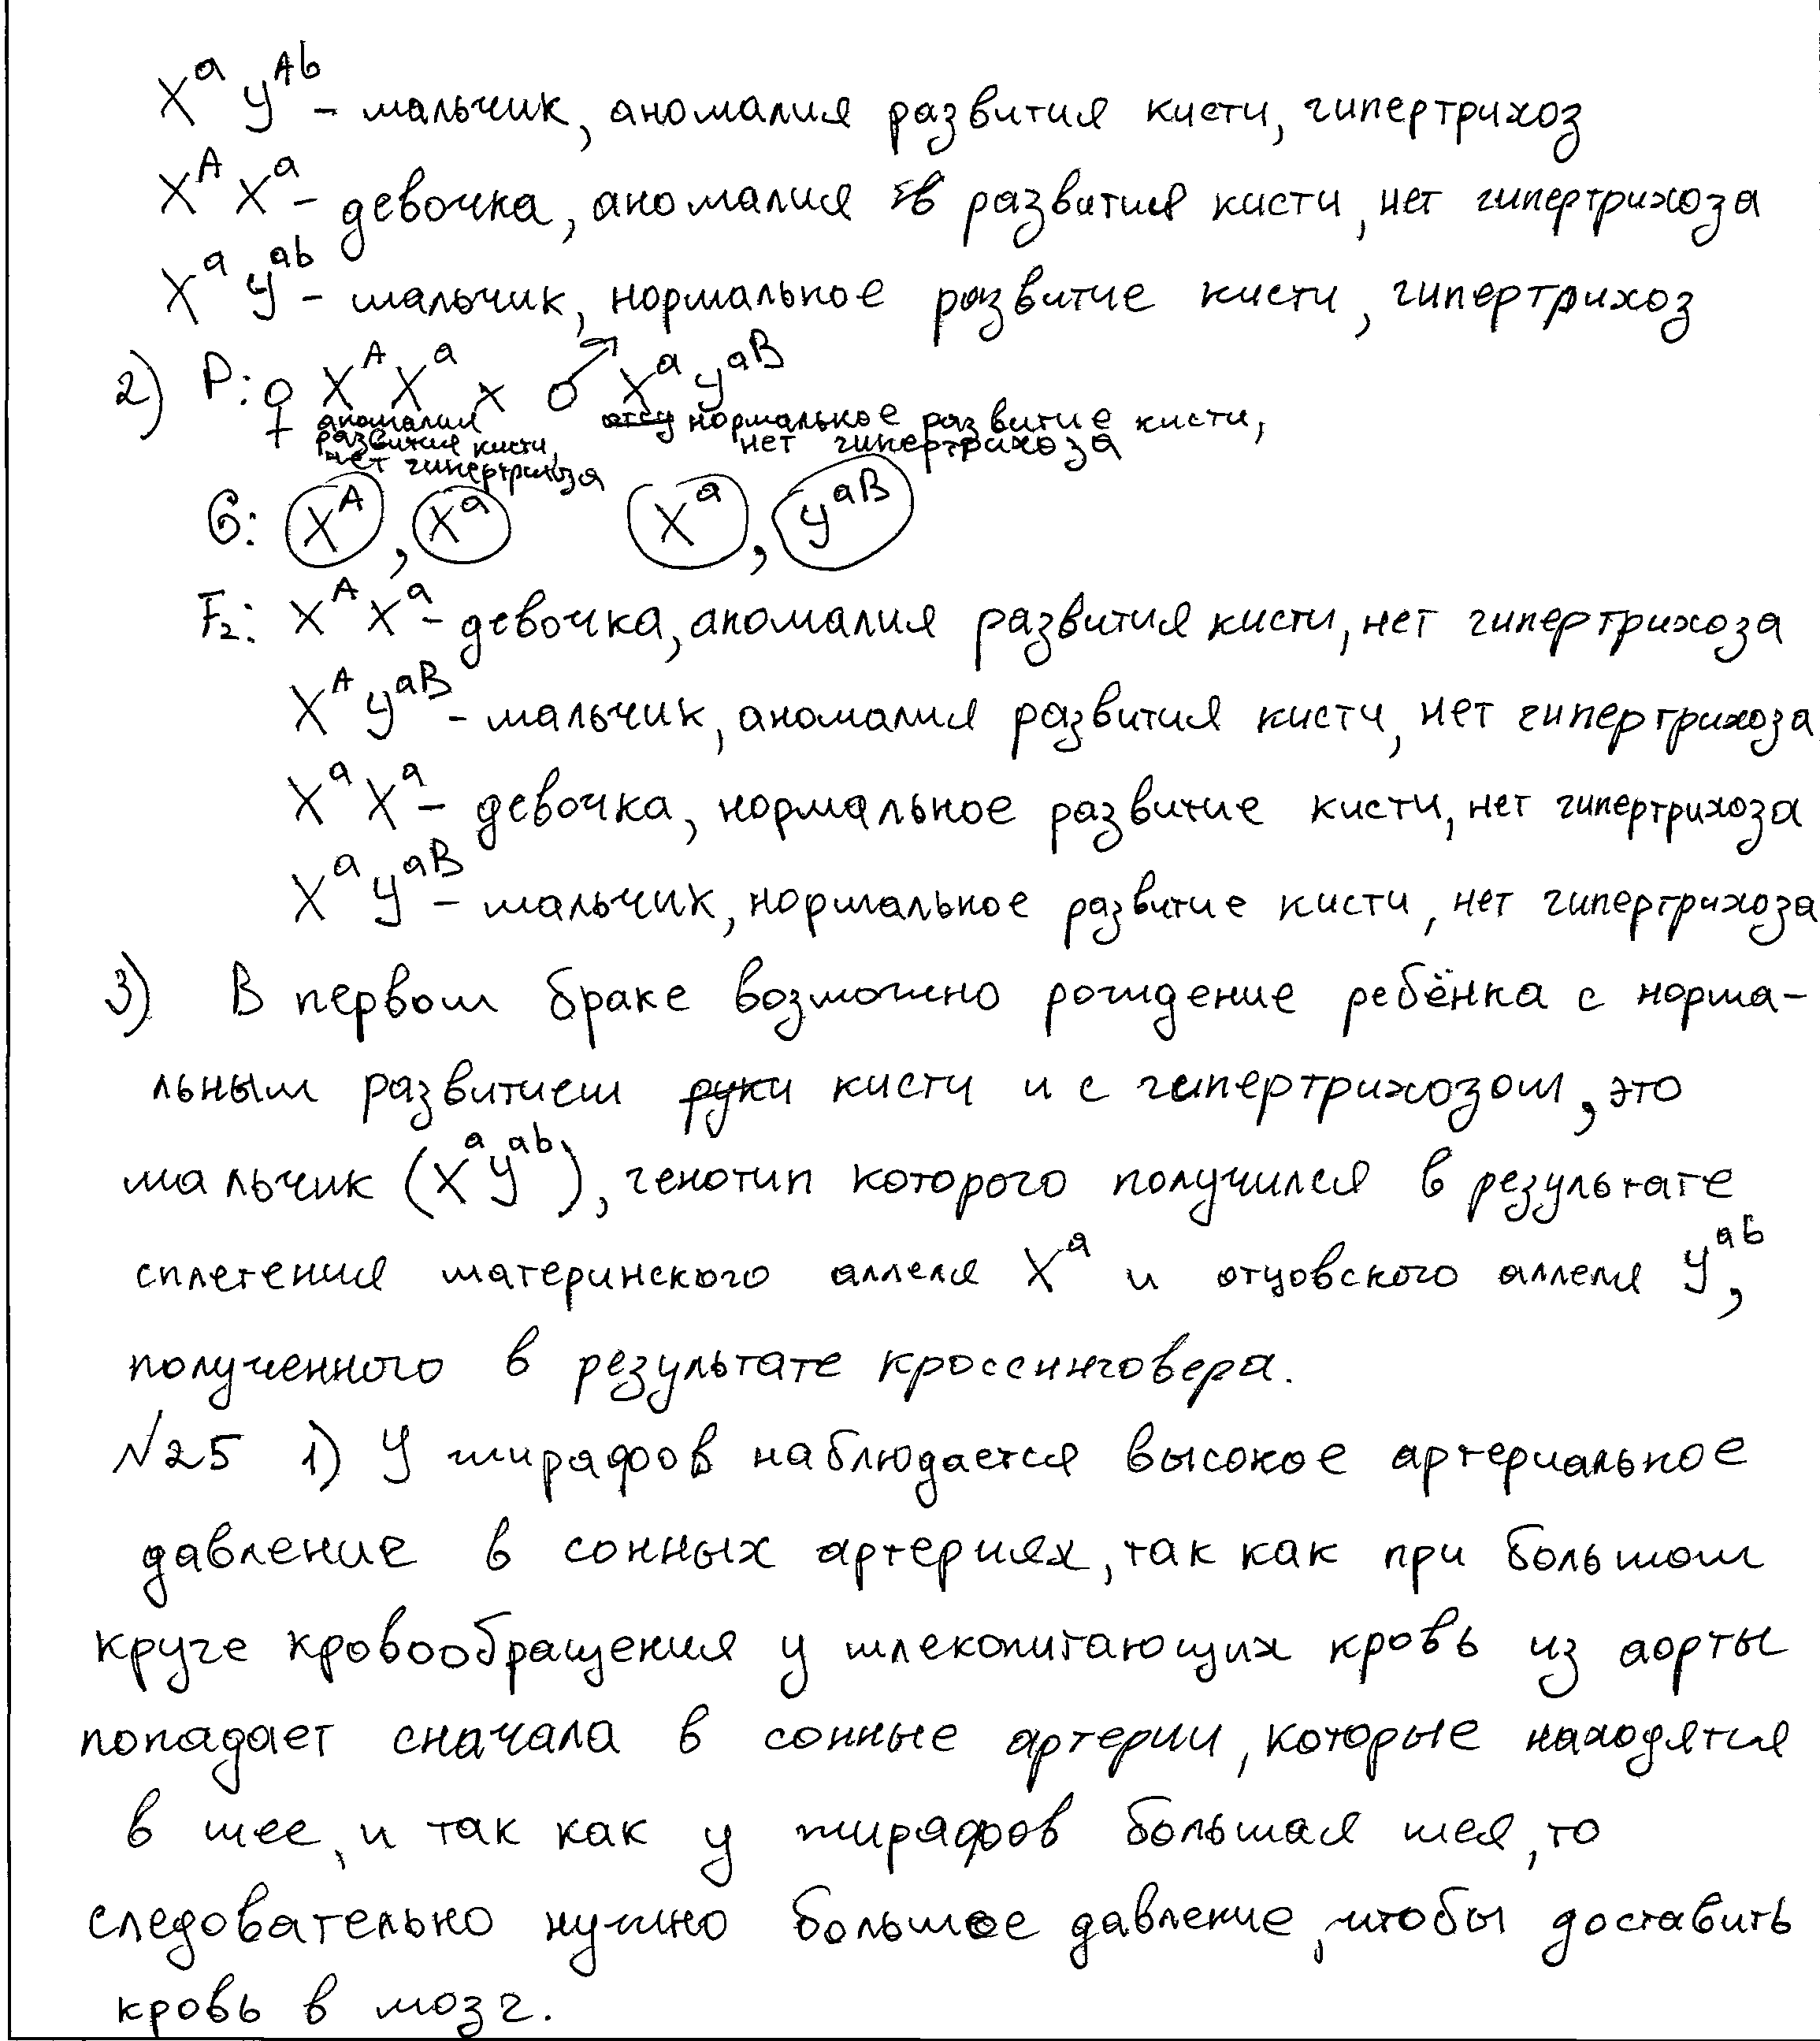 XᵃYᴬᵇ – мальчик, аномалия развития кисти, гипертрихоз
XᴬXᵃ – девочка, аномалия развития кисти, нет гипертрихоза
XᵃYᵃᵇ – мальчик, нормальное развитие кисти, гипертрихоз
2) P: ♀ XᴬXᵃ x ♂ XᵃYᵃᴮ
аномалия развития кисти, нет гипертрихоза
нормальное развитие кисти, нет гипертрихоза
G: Xᴬ, Xᵃ Xᵃ, Yᵃᴮ
F₂: XᴬXᵃ – девочка, аномалия развития кисти, нет гипертрихоза
XᴬYᵃᴮ – мальчик, аномалия развития кисти, нет гипертрихоза
XᵃXᵃ – девочка, нормальное развитие кисти, нет гипертрихоза
XᵃYᵃᴮ – мальчик, нормальное развитие кисти, нет гипертрихоза
3) В первом браке возможно рождение ребёнка с норма-
льным развитием руки кисти и с гипертрихозом, это
мальчик (XᵃYᵃᵇ), генотип которого получился в результате
сплетения материнского аллеля Xᵃ и отцовского аллеля Yᵃᵇ,
полученного в результате кроссинговера.
№25 1) У жирафов наблюдается высокое артериальное
давление в сонных артериях, так как при большом
круге кровообращения у млекопитающих кровь из аорты
попадает сначала в сонные артерии, которые находятся
в шее, и так как у жирафов большая шея, то
следовательно нужно большое давление, чтобы доставить
кровь в мозг.